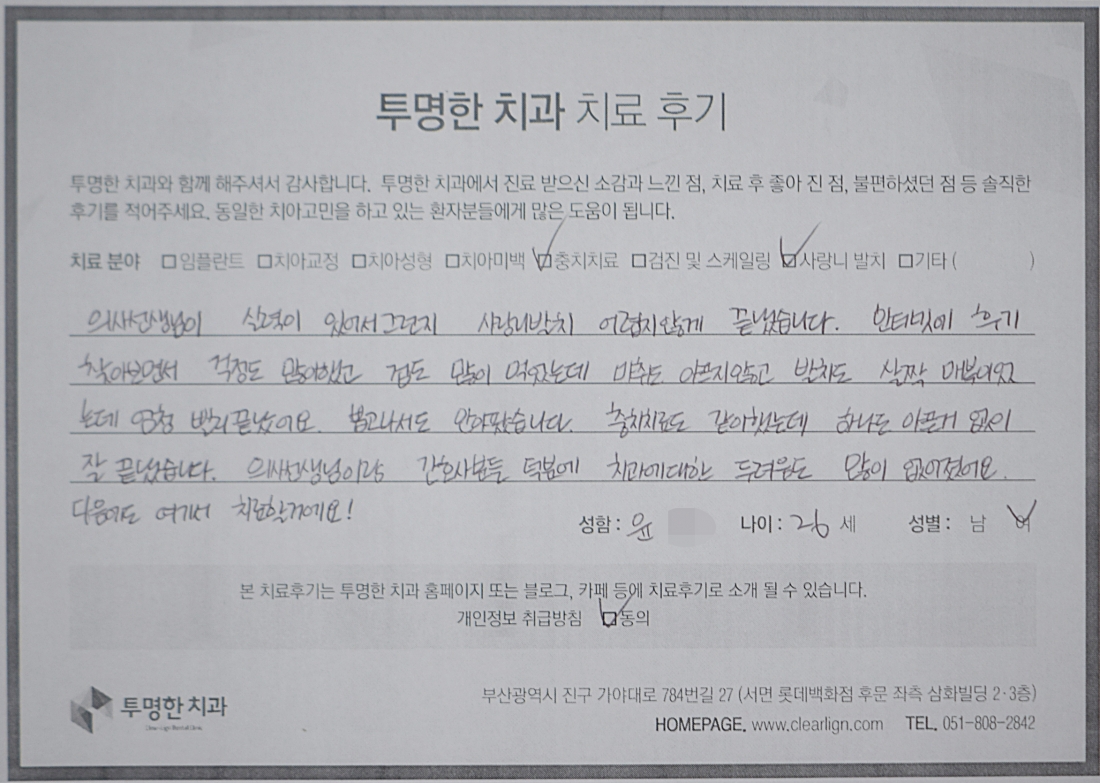 투명한 치과 치료 후기
투명한 치과와 함께 해주셔서 감사합니다. 투명한 치과에서 진료 받으신 소감과 느낀 점, 치료 후 좋아 진 점, 불편하셨던 점 등 솔직한
후기를 적어주세요. 동일한 치아고민을 하고 있는 환자분들에게 많은 도움이 됩니다.
치료 분야 □임플란트 □치아교정 □치아성형 □치아미백 ☑충치치료 □검진 및 스케일링 ☑사랑니 발치 □기타 ( )
의사선생님이 실력이 있어서그런지 사랑니발치 어렵지않게 끝났습니다. 인터넷에 후기
찾아보면서 걱정도 많이했고 겁도 많이 먹었는데 마취도 아프지않고 발치도 살짝 매복이었
는데 엄청 빨리끝났어요. 뽑고나서도 안아팠습니다. 충치치료도 같이했는데 하나도 아픈거 없이
잘 끝났습니다. 의사선생님이랑 간호사분들 덕분에 치과에대한 두려움도 많이 없어졌어요.
다음에도 여기서 치료할거에요!
성함 : 윤 나이 : 26 세 성별 : 남 여
본 치료후기는 투명한 치과 홈페이지 또는 블로그, 카페 등에 치료후기로 소개 될 수 있습니다.
개인정보 취급방침 ☑동의
투명한 치과
부산광역시 진구 가야대로 784번길 27 (서면 롯데백화점 후문 좌측 삼화빌딩 2·3층)
HOMEPAGE. www.clearlign.com TEL. 051-808-2842